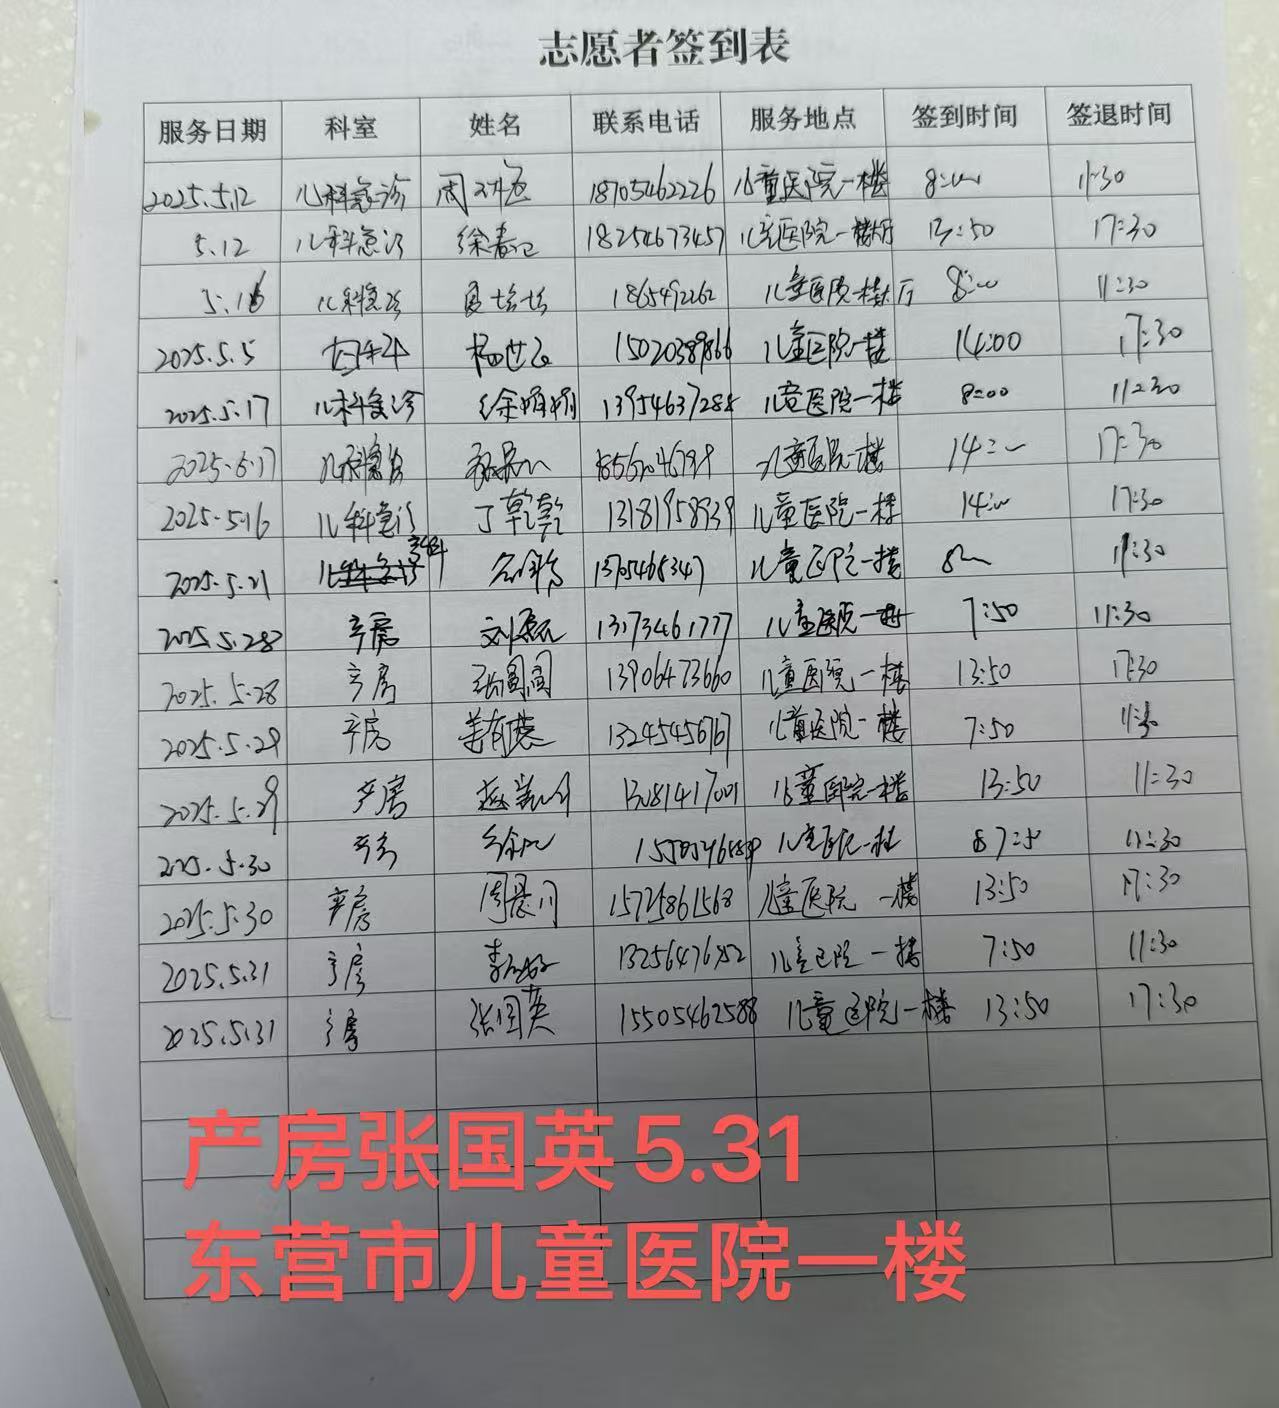 志愿者签到表
服务日期 科室 姓名 联系电话 服务地点 签到时间 签退时间
2025.5.12 儿科急诊 周 18705462226 儿童医院一楼 8:00 11:30
5.12 儿科急诊 徐春 18254673457 儿童医院一楼大厅 13:50 17:30
5.16 儿科急诊 1865492262 儿童医院一楼大厅 8:00 11:30
2025.5.5 杨世 15020389866 儿童医院一楼 14:00 17:30
2025.5.17 儿科急诊 徐娟娟 13954637288 儿童医院一楼 8:00 11:30
2025.5.17 儿科急诊 儿童医院一楼 14:00 17:30
2025.5.16 儿科急诊 丁乾乾 13181958939 儿童医院一楼 14:00 17:30
2025.5.21 13705465347 儿童医院一楼 8:00 11:30
2025.5.28 产房 刘磊 13173461777 儿童医院一楼 7:50 11:30
2025.5.28 产房 张圆圆 13906473660 儿童医院一楼 13:50 17:30
2025.5.29 产房 姜有 13245456767 儿童医院一楼 7:50 11:30
2025.5.29 产房 赵 13081417001 儿童医院一楼 13:50 11:30
2025.5.30 产房 徐 儿童医院一楼 7:50 11:30
2025.5.30 产房 周晨 15725861568 儿童医院一楼 13:50 17:30
2025.5.31 产房 李 儿童医院一楼 7:50 11:30
2025.5.31 产房 张国英 15505462588 儿童医院一楼 13:50 17:30
产房张国英5.31
东营市儿童医院一楼